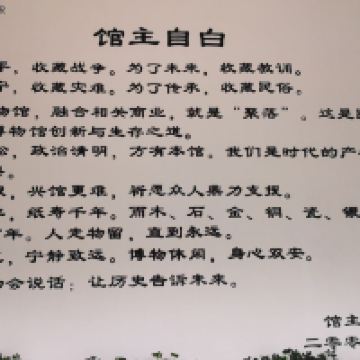 馆主自白
，收藏战争。为了未来，收藏教训。
，收藏灾难。为了传承，收藏民俗。
物馆，融合相关商业，就是“聚落”。这是
博物馆创新与生存之道。
，政治清明，方有本馆。我们是时代的产
，兴馆更难，祈愿众人鼎力支援。
，纸寿千年。而木、石、金、铜、瓷、银
年。人走物留，直到永远。
，宁静致远。博物休闲，身心双安。
会说话；让历史告诉未来。
馆主
二零零